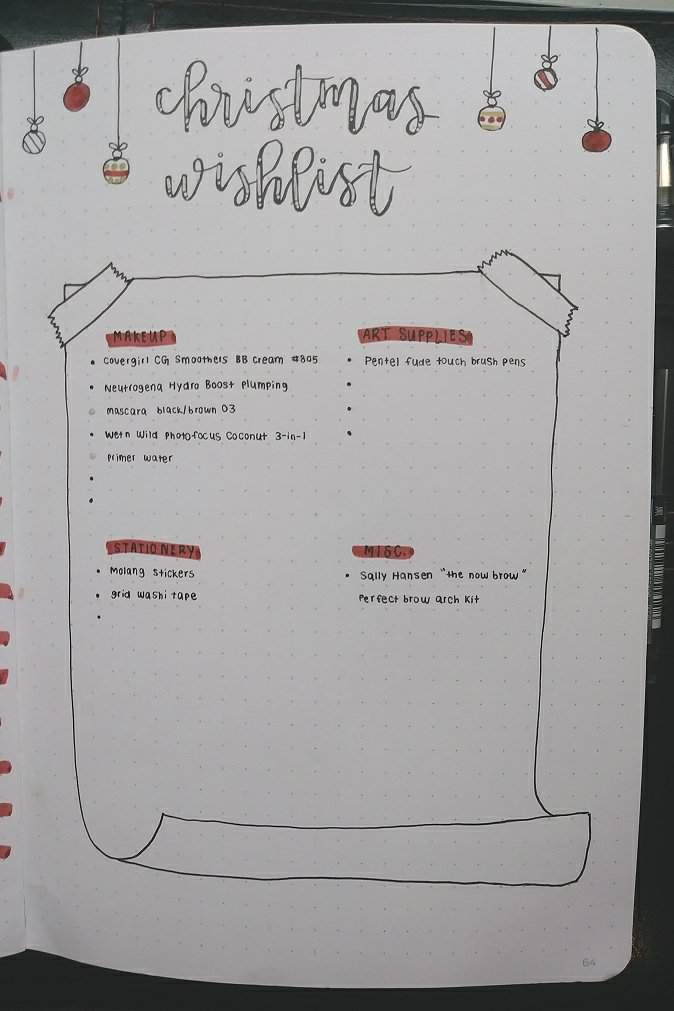 christmas
wishlist
MAKEUP
• Covergirl CG Smoothers BB Cream #805
• Neutrogena Hydro Boost Plumping
mascara black/brown 03
• Wet n Wild Photofocus Coconut 3-in-1
Primer water
ART SUPPLIES
• Pentel fude touch brush pens
STATIONERY
• Molang Stickers
• grid washi tape
MISC.
• Sally Hansen "the now brow"
Perfect brow arch kit
64